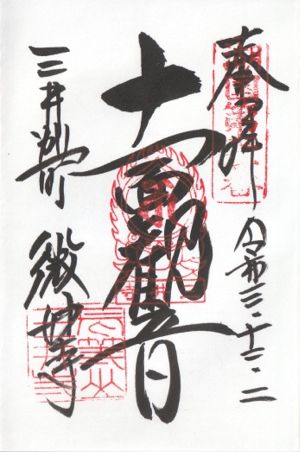 奉拝
令和三・十二・二
十一面観音
三井別所
微妙寺